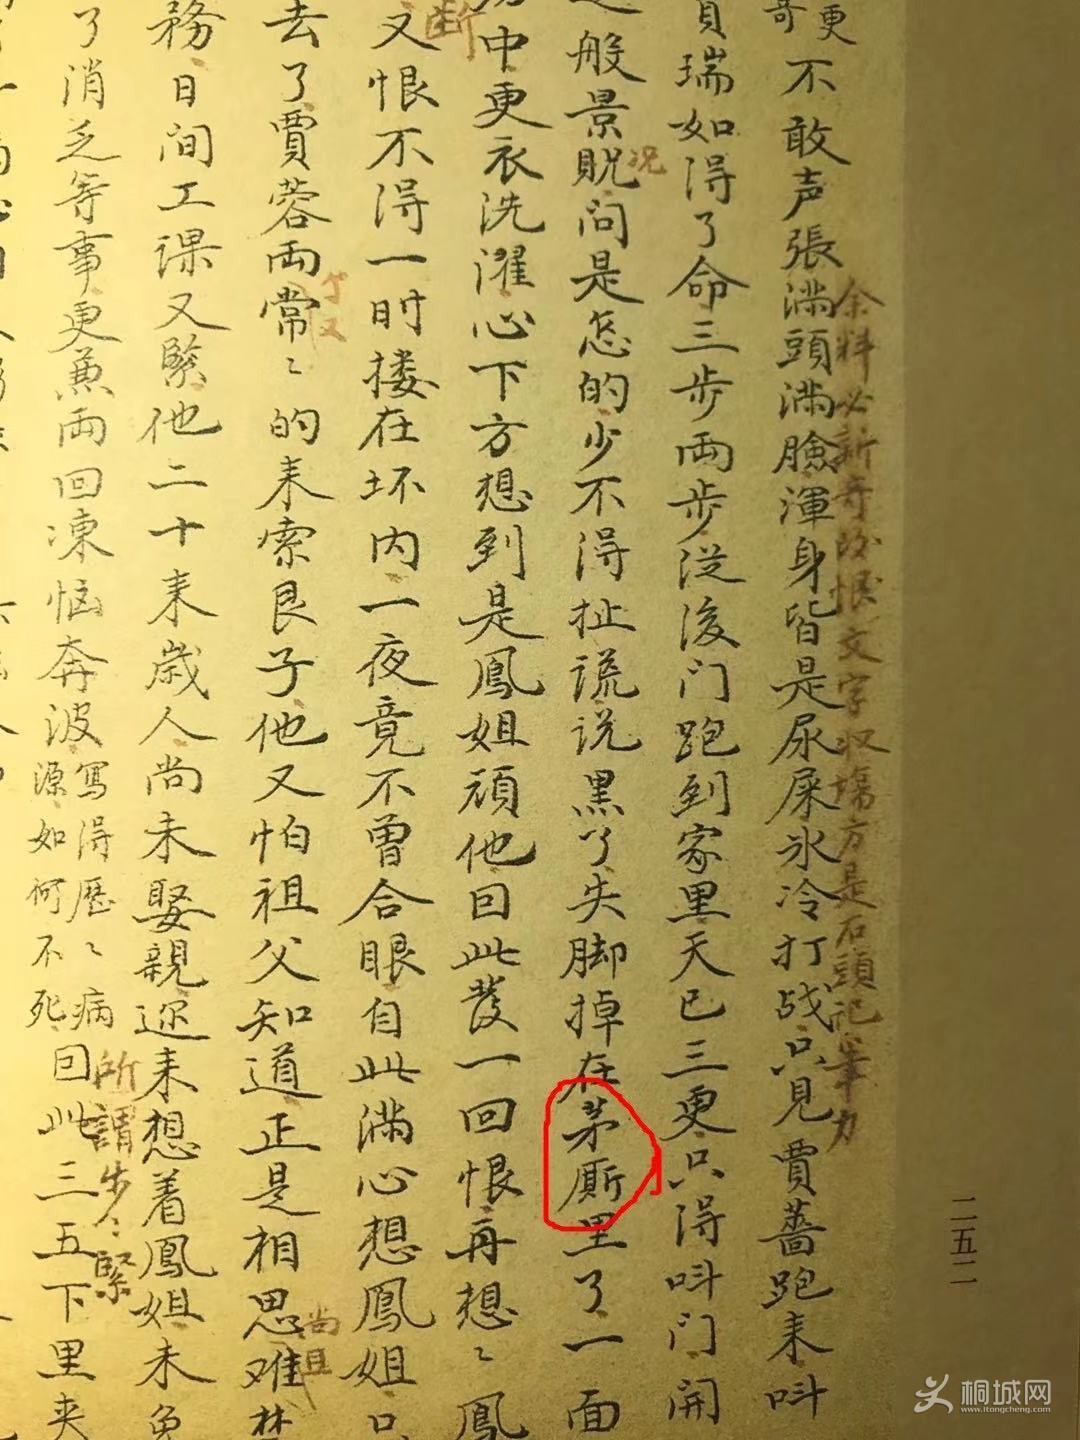 更
哥
不敢声張満頭満臉渾身皆是尿屎氷冷打战只见賈薔跑来呌
余料必新奇改恨文字収塲方是石頭記筆力
瑞如得了命三步両步従後门跑到家里天已三更只得呌门開
般景貺问是怎的少不得扯谎说黒了失脚掉在茅厮里了一面
况
中更衣洗濯心下方想到是鳳姐頑他回此發一回恨再想〻鳳
又恨不得一时搂在坏内一夜竟不曾合眼自此满心想鳳姐只
断
去了賈蓉両常〻的来索艮子他又怕祖父知道正是相思难禁
个又
尚且
務日间工課又緊他二十来歳人尚未娶親迩来想着鳳姐未免
了消乏等事更兼両回凍恼奔波
寫得歴〻病
源如何不死
回此三五下里夹
所謂步〻緊
二五二
桐城网
www.itongcheng.com